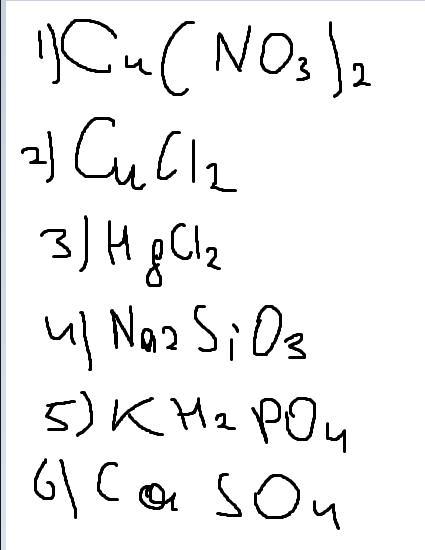 1) Cu(NO3)2
2) CuCl2
3) HgCl2
4) Na2SiO3
5) KH2PO4
6) CaSO4